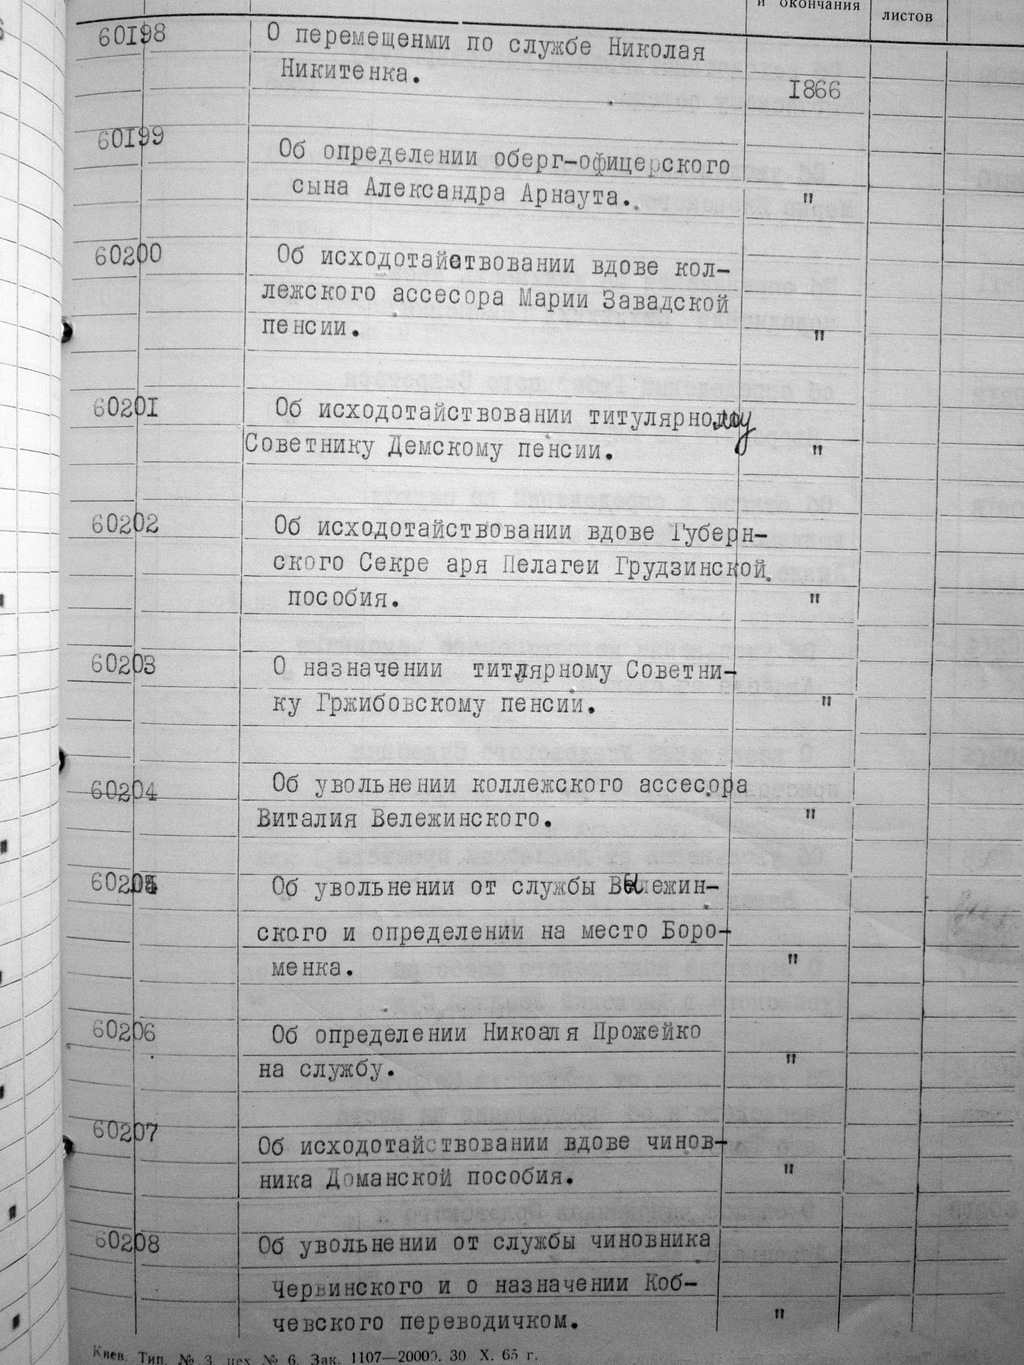 и окончания
листов
60198 О перемещенми по службе Николая
Никитенка.
1866
60199
Об определении оберг-офицерского
сына Александра Арнаута. "
60200 Об исходотайствовании вдове кол-
лежского ассесора Марии Завадской
пенсии. "
60201 Об исходотайствовании титулярному
Советнику Демскому пенсии. "
60202 Об исходотайствовании вдове Губерн-
ского Секре аря Пелагеи Грудзинской
пособия. "
60203 О назначении титлярному Советни-
ку Гржибовскому пенсии. "
60204 Об увольнении коллежского ассесора
Виталия Вележинского. "
60205 Об увольнении от службы Вележин-
ского и определении на место Боро-
менка. "
60206 Об определении Никоаля Прожейко
на службу. "
60207
Об исходотайствовании вдове чинов-
ника Доманской пособия. "
60208 Об увольнении от службы чиновника
Червинского и о назначении Коб-
чевского переводичком. "
Киев. Тип. № 3, цех № 6. Зак. 1107—20000. 30 X. 65 г.